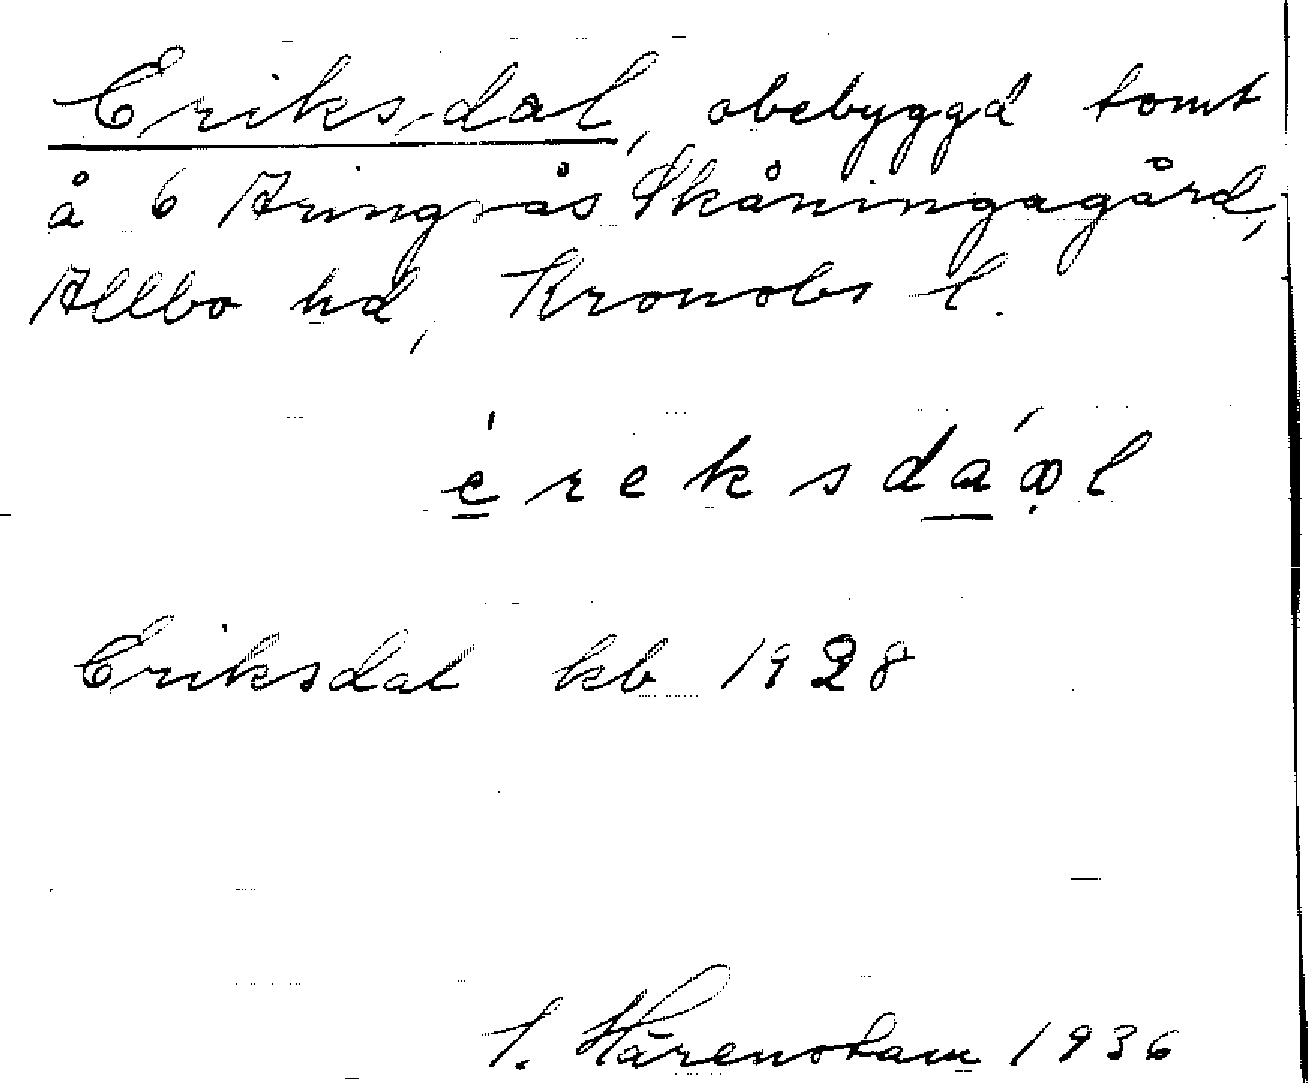 Eriksdal, obebyggd tomt
å 6 Aringsås Skåningagård,
Allbo hd, Kronobs l.
éreksdáαl
Eriksdal kb 1928
S. Härenstam 1936